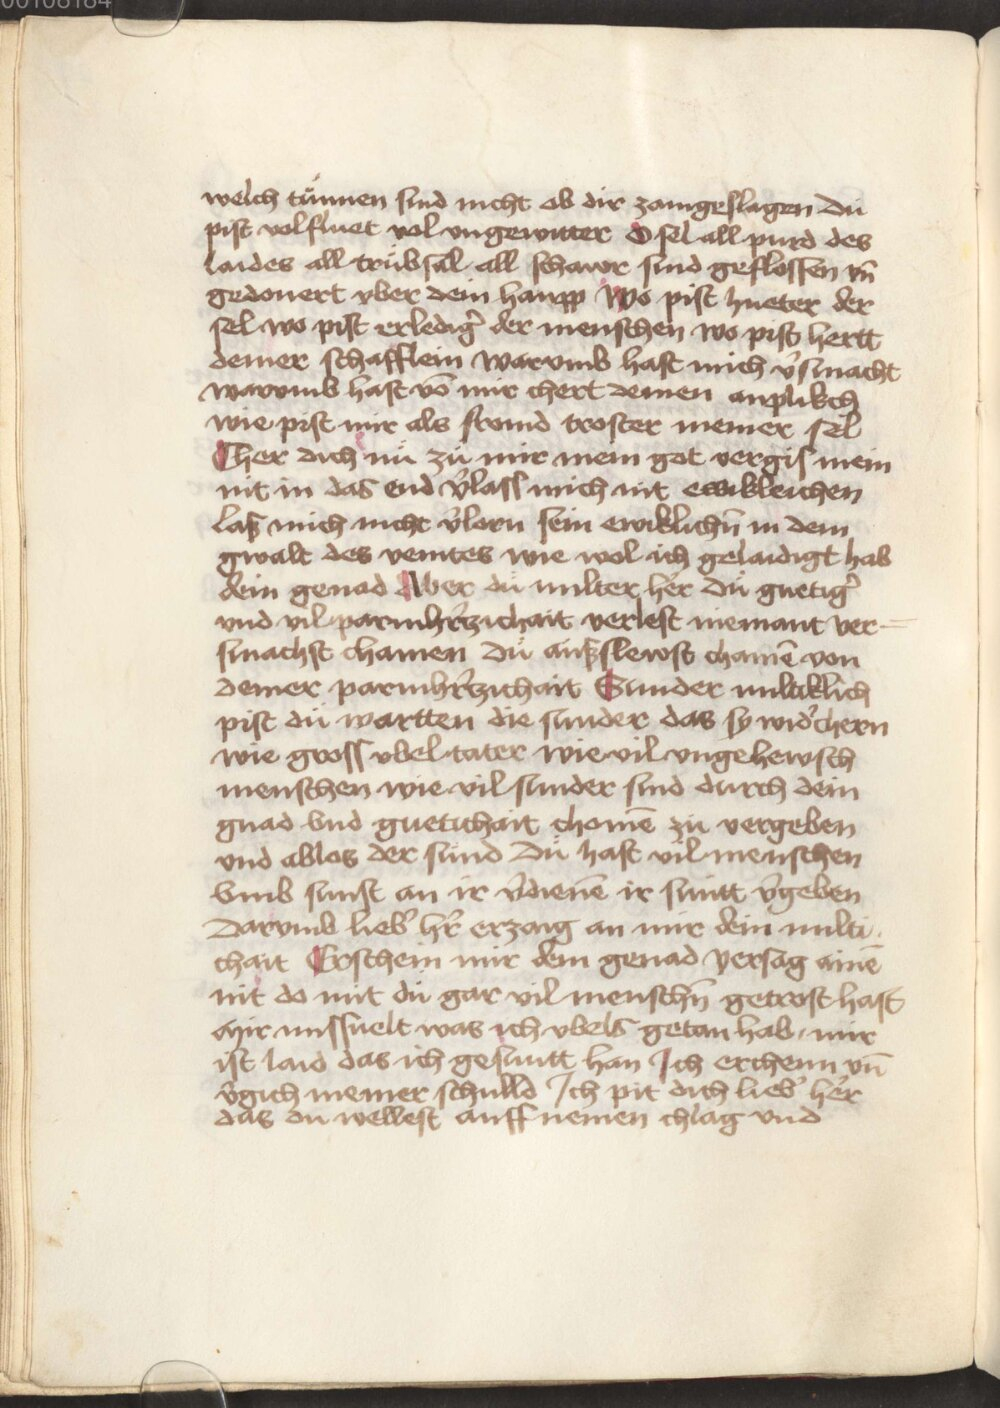 00108184
welch tünnen sind nicht ob dir zamgeslagen Du
pist volfluet vol vngewitter O sel all purd des
laides all trübsal all schawr sind geflossen vñ
gedonert vber dein haupp Wo pist hueter der
sel wo pist erledig̉ der menschen wo pist hertt
deiner schafflein warvmb hast mich v̉smacht
warvmb hast võ mir chert deinen anplikch
wie pist mir als fromd troster meiner sel
Cher dich nü zü mir mein got vergis mein
nit in das end v̉lass mich nit ewikleichen
Las mich nicht v̉lorn sein ewiklichñ in dem
gwalt des veintes wie wol ich gelaidigt hab
dein genad Aber dü milter her̉ Dü guetig̉
vnd vil parmhr̉zichait verlest niemant ver=
smachst chainen Dü auſslewst chainē von
deiner parmhr̉tzichait Sunder miltiklich
pist dü wartten die sunder das sy wid̉chern
wie gross vbel tater wie vil vngehewsch
menschen wie vil sunder sind durch dein
gnad vnd guetichait chomē zü vergeben
vnd ablos der sünd Dü hast vil menschen
vmb sunst an ir v̉dienē ir suntt v̉geben
Darvmb lieb̉ hr̉ erzaig an mir dein milti
chait Erschein mir dein genad Versag ainē
nit do mit dü gar vil menschñ getrost hast
Mir missuelt was ich vbels getan hab mir
ist laid das ich gesuntt han Ich erchenn vñ
v̉gich meiner schulld Ich pit dich lieb̉ her̉
das du wellest auffnemen chlag vnd